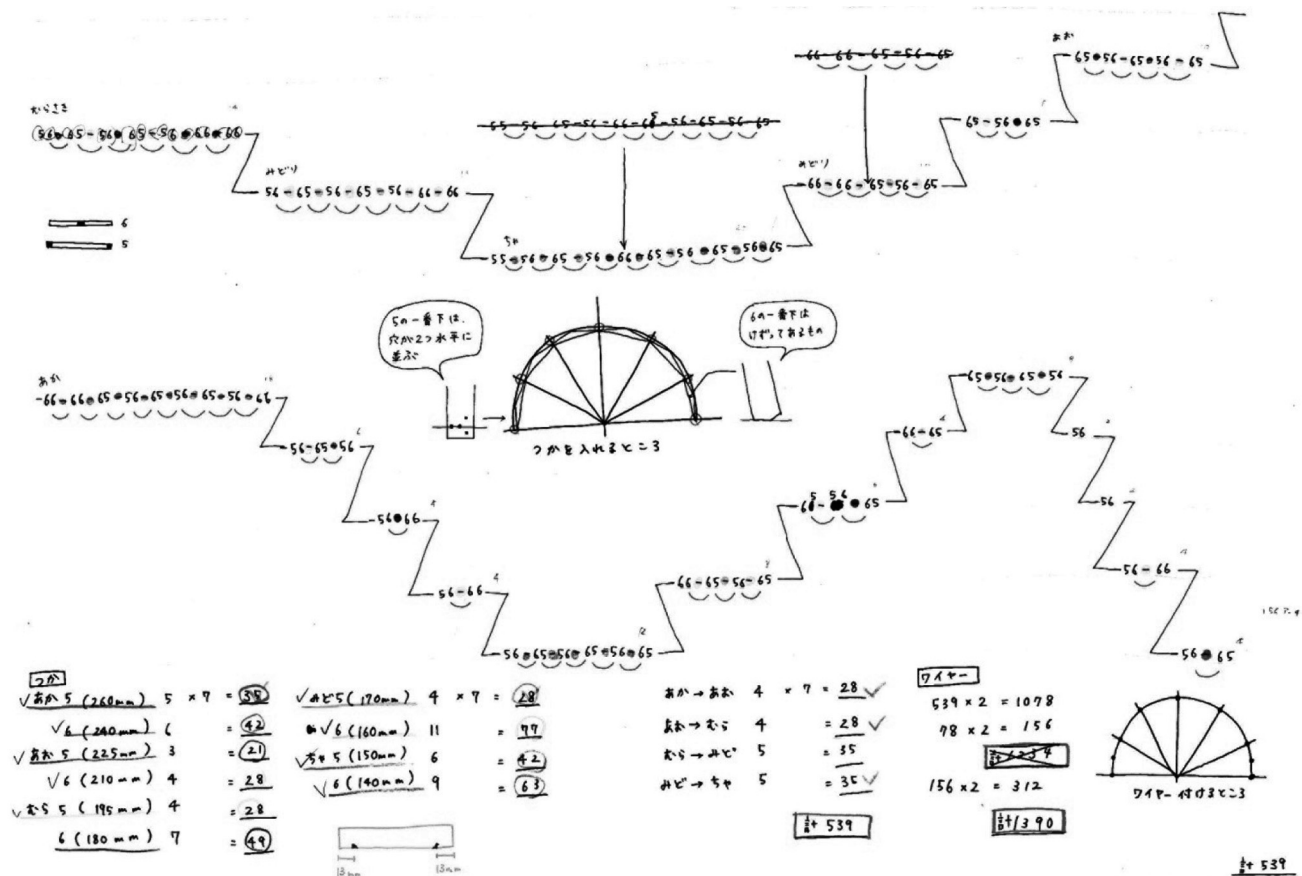 66-66-65-56-65
あお
65•56-65•56-65
むらさき
56•65-56•65-56•66•66
55-56-65-56-66-65-56-65-56-65
65-56•65
みどり
56-65-56-65-56-66-66
みどり
66-66-65-56-65
6
5
ちゃ
55-56-65-56•66•65-56•65-56•65
5の一番下は、
穴が2つ水平に
並ぶ
6の一番下は
けずってあるもの
つかを入れるところ
あか
-66-66•65•56•65•56•65•56•66
65•56•65•56
56-65•56
66-65
56
56•66
56
56-66
66-65-56-65
56-66
56•65•56•65•56•65
56•65
つか
✓あか5(260mm) 5 ×7 = 35
✓6(240mm) 6 = 42
✓あお5(225mm) 3 = 21
✓6(210mm) 4 = 28
✓むら5(195mm) 4 = 28
6(180mm) 7 = 49
✓みど5(170mm) 4 ×7 = 28
✓6(160mm) 11 = 77
✓ちゃ5(150mm) 6 = 42
✓6(140mm) 9 = 63
13mm
13mm
あか→あお 4 ×7 = 28 ✓
あお→むら 4 = 28 ✓
むら→みど 5 = 35
みど→ちゃ 5 = 35 ✓
計 539
ワイヤー
539×2 = 1078
78×2 = 156
計1234
156×2 = 312
計1390
ワイヤー付けるところ
計 539